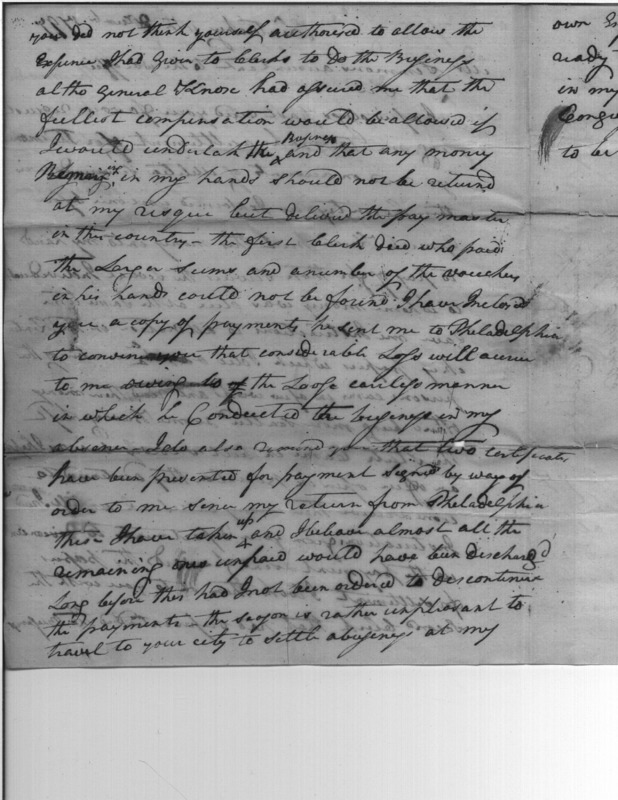 you did not think yourself authorised to allow the
Expence I had Given to Clerks to Do the Business
altho General Knox had assured me that the
fullest compensation would be allowed if
I would undertake the Business and that any money
Remaing in my hands should not be returnd
at my risque but deliverd the pay master
in this country – the first Clerk died who paid
the Larger Sums and a number of the vouchers
in his hands could not be found I have Inclosed
you a copy of payments he sent me to Philadelphia
to convince you that considerable Loss will accrue
to me owing to the Loose careless manner
in which he Conducted the business in my
absence – I do also remind you that two certificates
have been presented for payment signed by way of
order to me since my return from Philadelphia
these I have taken up and I believe almost all the
remaining ones unpaid would have been dischargd
Long before this had I not been ordered to discontinue
the payments – the season is rather unpleasant to
travel to your city to settle a business at my
own
ready
in my
to be